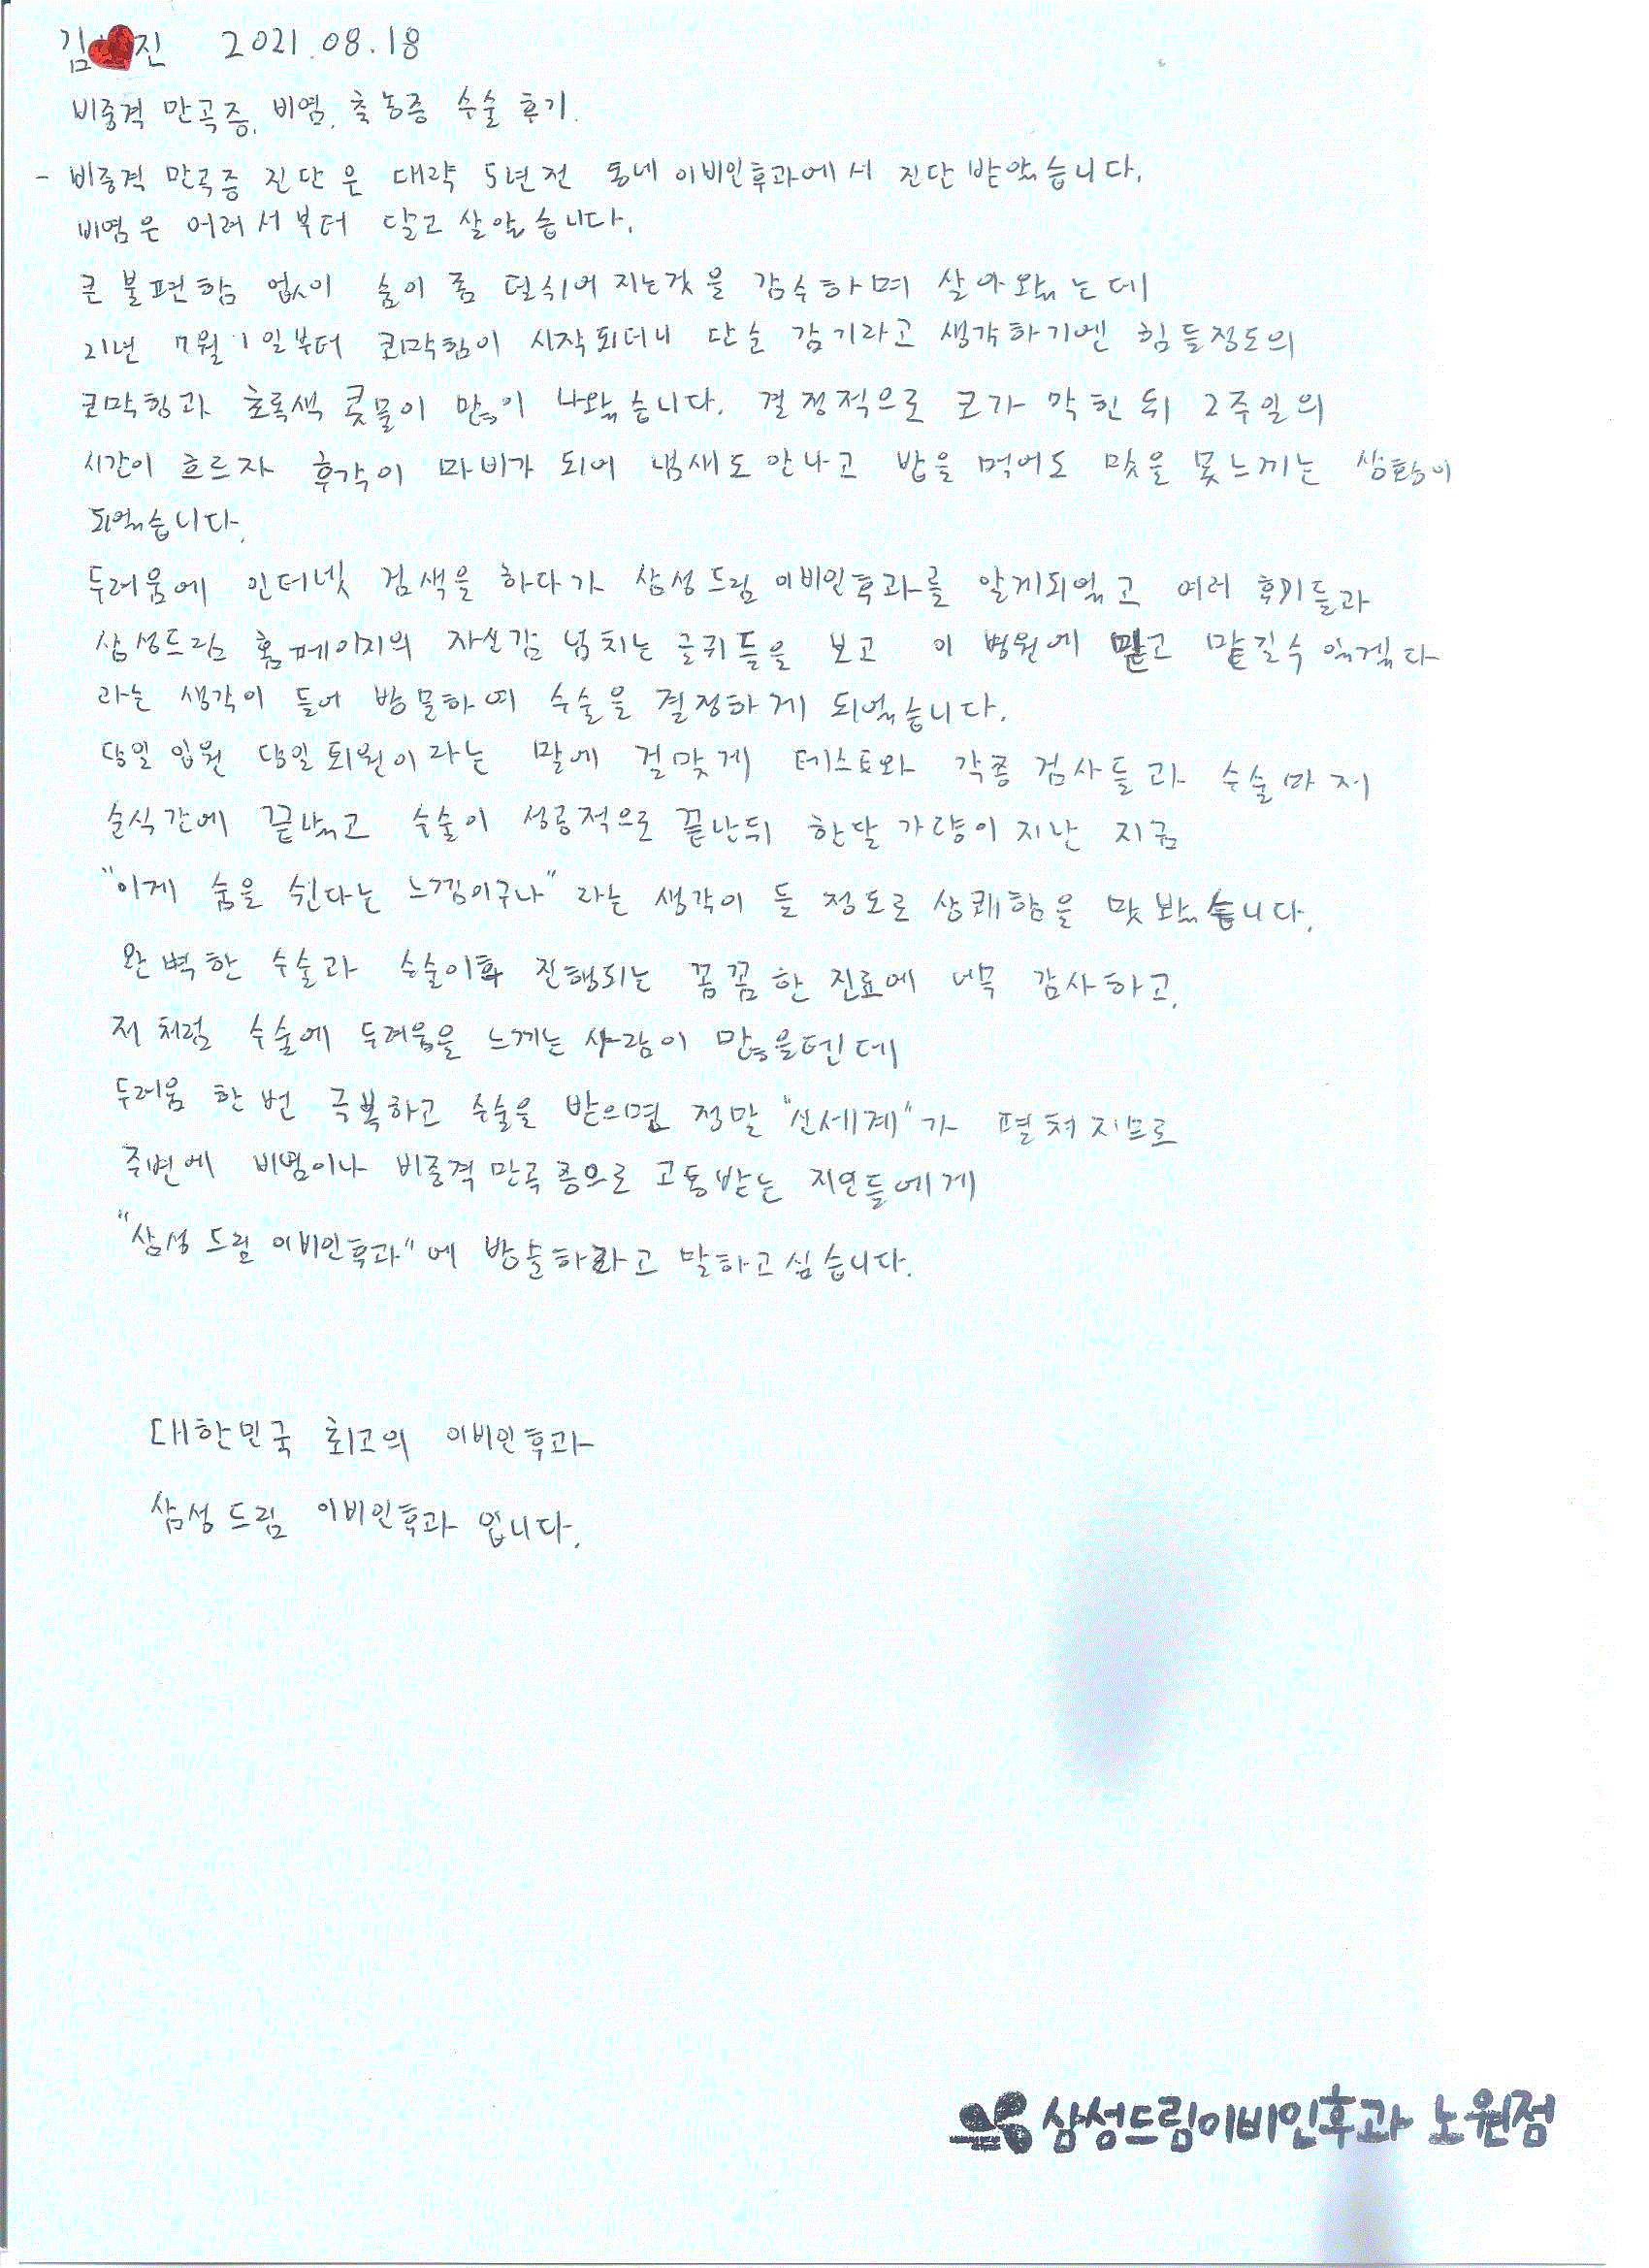 김❤진 2021.08.18
비중격 만곡증, 비염, 축농증 수술 후기.
- 비중격 만곡증 진단은 대략 5년전 동네 이비인후과에서 진단 받았습니다.
비염은 어려서부터 달고 살았습니다.
큰 불편함 없이 숨이 좀 덜 쉬어 지는것을 감수하며 살아왔는데
21년 7월 1일부터 코막힘이 시작되더니 단순 감기라고 생각하기엔 힘들정도의
코막힘과 초록색 콧물이 많이 나왔습니다. 결정적으로 코가 막힌 뒤 2주일의
시간이 흐르자 후각이 마비가 되어 냄새도 안나고 밥을 먹어도 맛을 못느끼는 상황이
되었습니다.
두려움에 인터넷 검색을 하다가 삼성드림 이비인후과를 알게되었고 여러 후기들과
삼성드림 홈페이지의 자신감 넘치는 글귀들을 보고 이 병원에 믿고 맡길수 있겠다
라는 생각이 들어 방문하여 수술을 결정하게 되었습니다.
당일 입원 당일 퇴원이라는 말에 걸맞게 테스트와 각종 검사들과 수술마저
순식간에 끝났고 수술이 성공적으로 끝난뒤 한달 가량이 지난 지금
"이게 숨을 쉰다는 느낌이구나" 라는 생각이 들 정도로 상쾌함을 맛 봤습니다.
완벽한 수술과 수술이후 진행되는 꼼꼼한 진료에 너무 감사하고,
저 처럼 수술에 두려움을 느끼는 사람이 많을텐데
두려움 한 번 극복하고 수술을 받으면 정말 "신세계"가 펼쳐지므로
주변에 비염이나 비중격만곡증으로 고통받는 지인들에게
"삼성 드림 이비인후과"에 방문하라고 말하고싶습니다.
대한민국 최고의 이비인후과
삼성드림 이비인후과 입니다.
삼성드림이비인후과 노원점